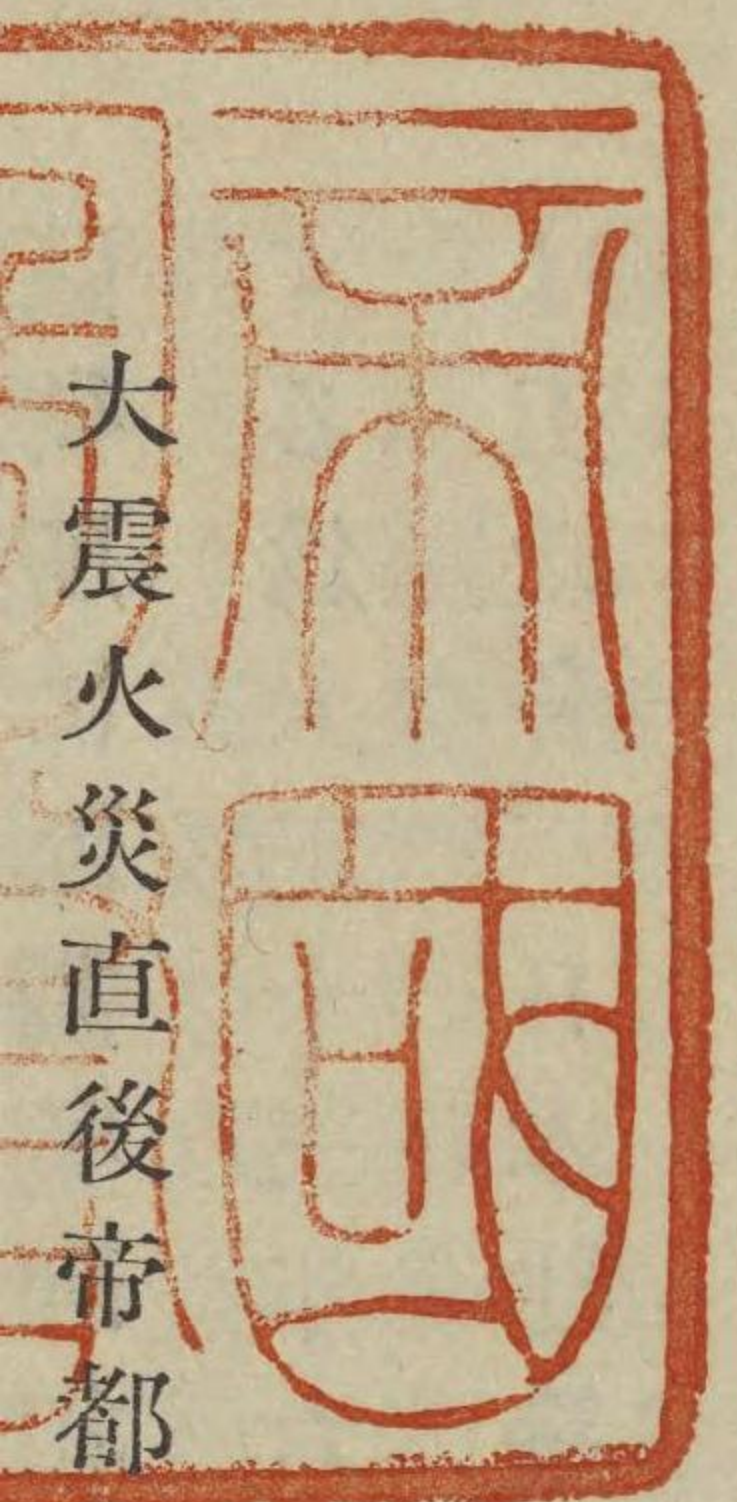 帝國
大震火災直後帝都